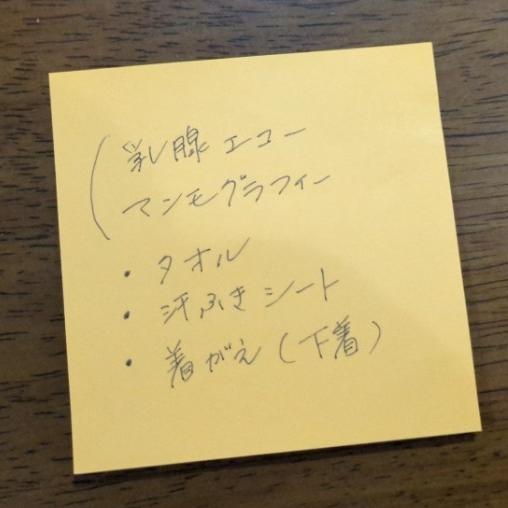 乳腺エコー
マンモグラフィー
・タオル
・汗ふきシート
・着がえ(下着)